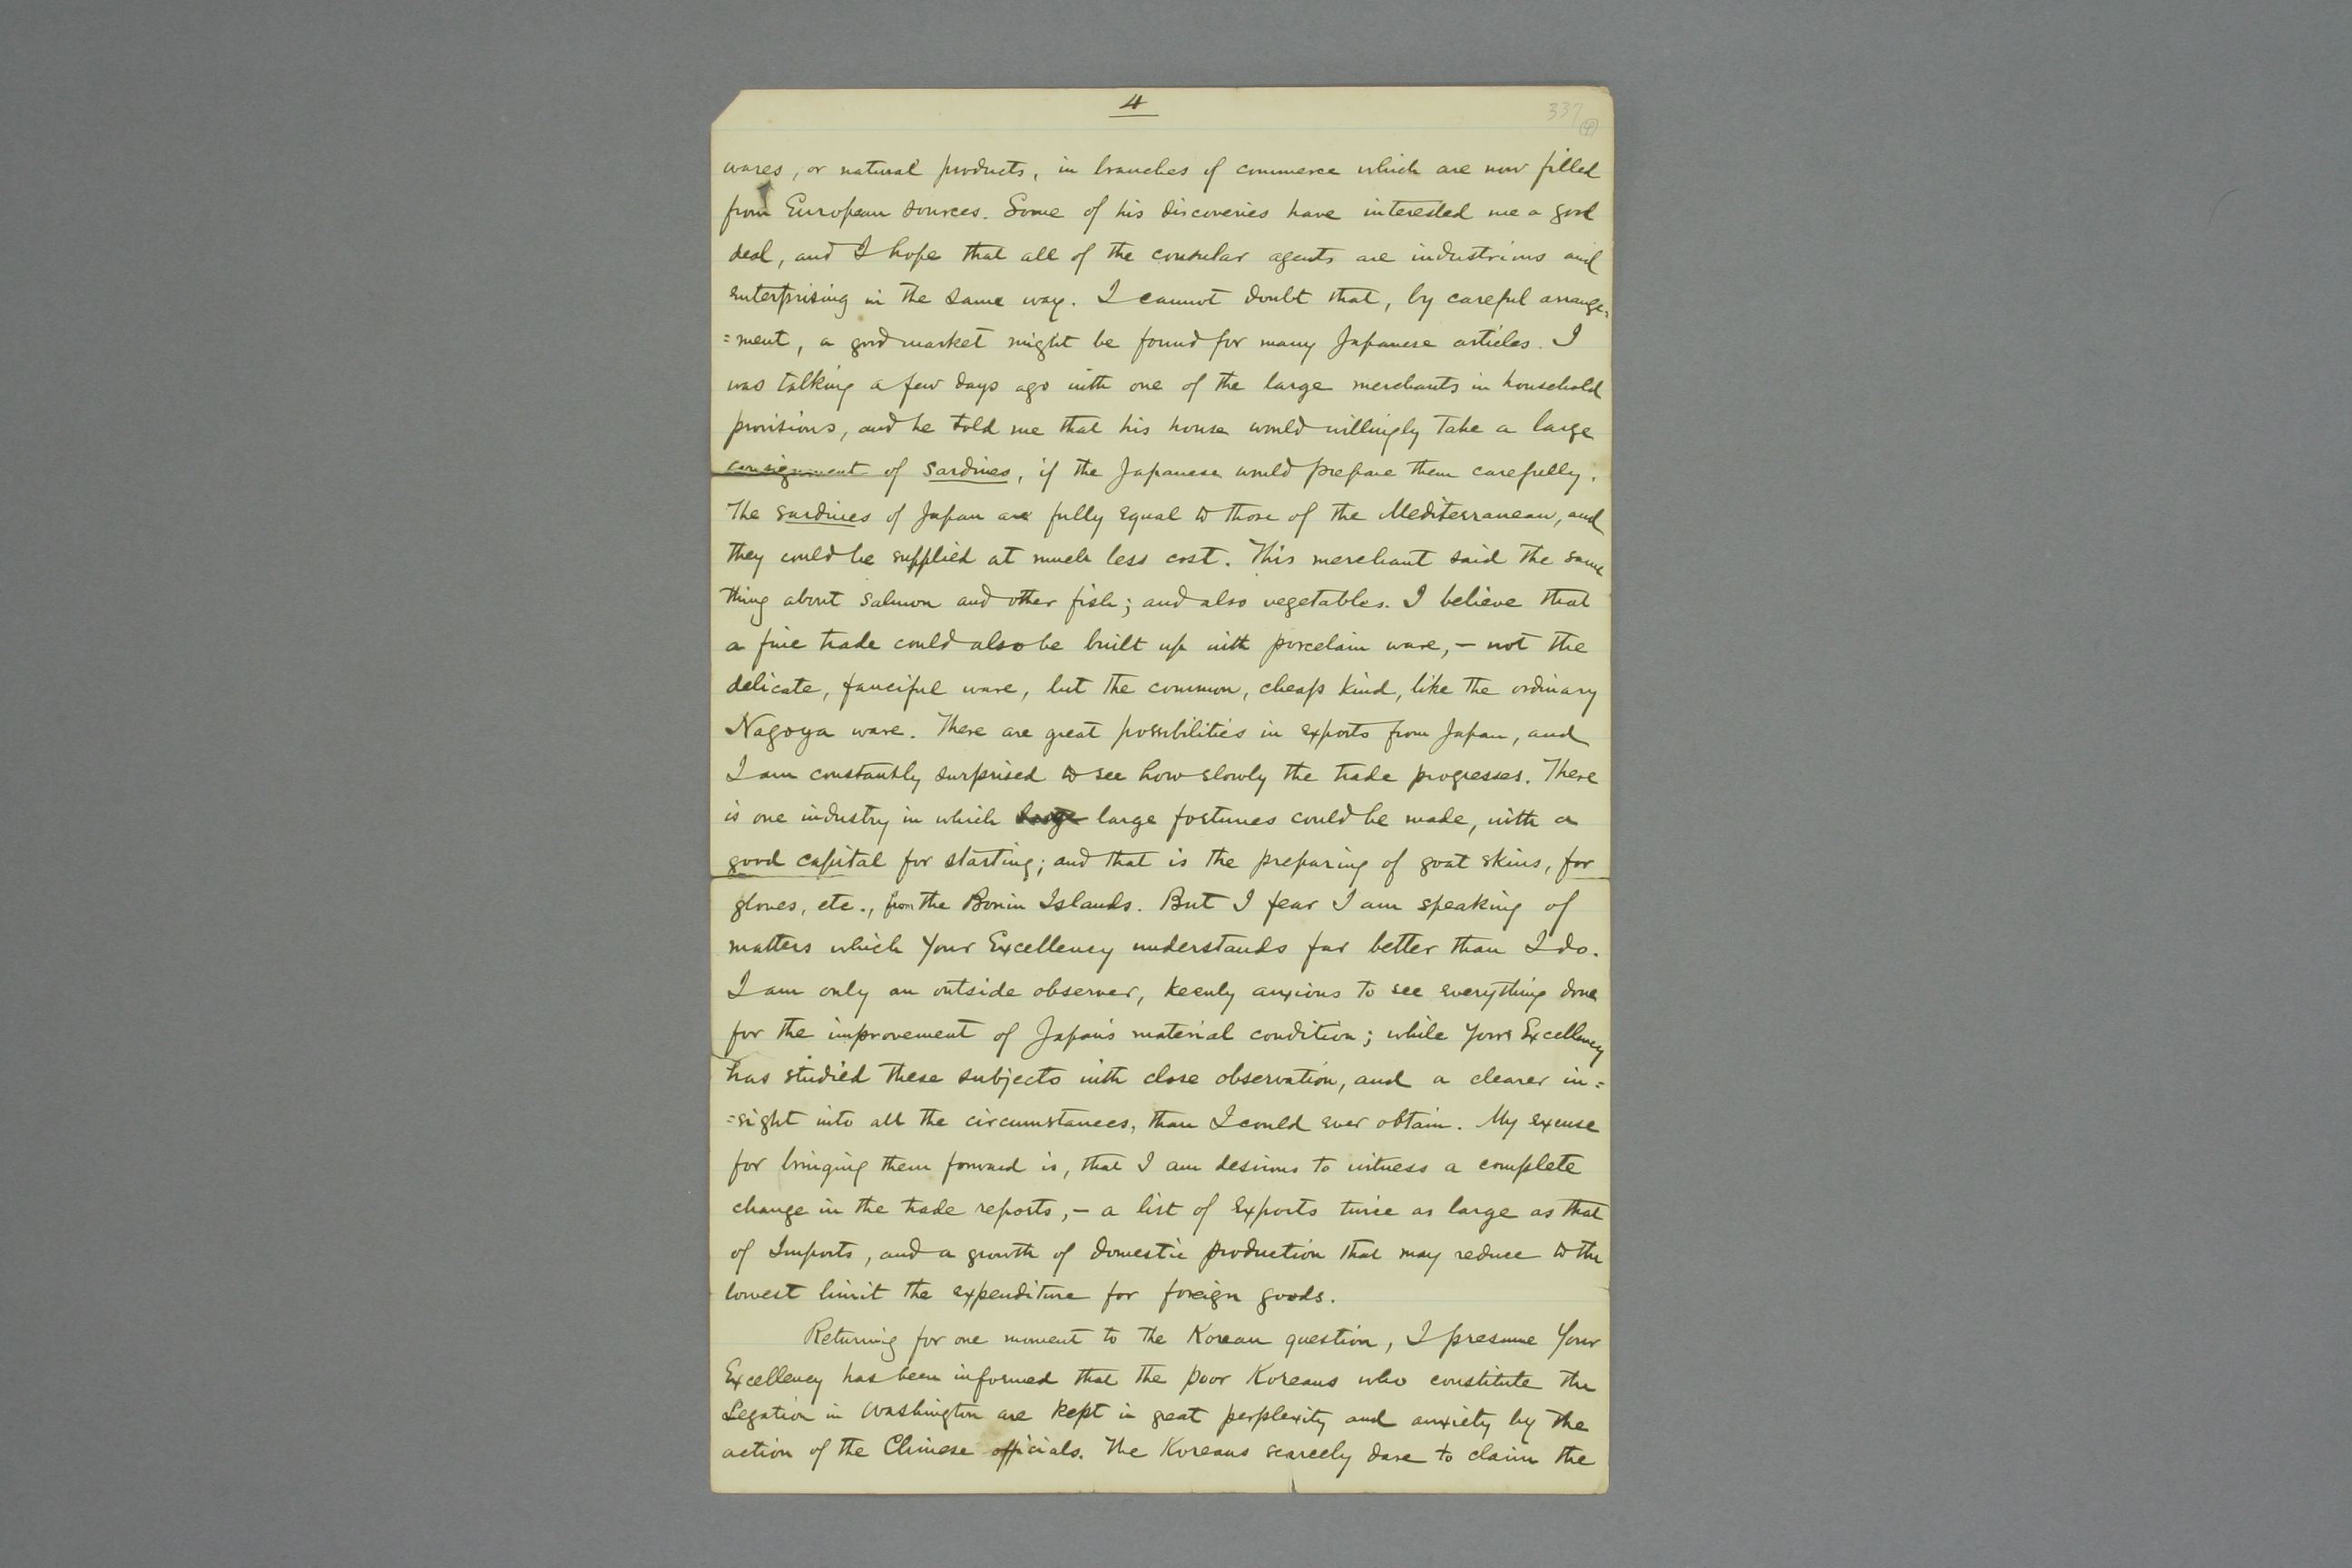 4
337
4
wares, or natural products, in branches of commerce which are now filled
from European sources. Some of his discoveries have interested me a good
deal, and I hope that all of the consular agents are industrious and
enterprising in the same way. I cannot doubt that, by careful arrange=
=ment, a good market might be found for many Japanese articles. I
was talking a few days ago with one of the large merchants in household
provisions, and he told me that his house would willingly take a large
consignment of sardines, if the Japanese would prepare them carefully.
The sardines of Japan are fully equal to those of the Mediterranean, and
they could be supplied at much less cost. This merchant said the same
thing about salmon and other fish; and also vegetables. I believe that
a fine trade could also be built up with porcelain ware, — not the
delicate, fanciful ware, but the common, cheap kind, like the ordinary
Nagoya ware. There are great possibilities in exports from Japan, and
I am constantly surprised to see how slowly the trade progresses. There
is one industry in which large fortunes could be made, with a
good capital for starting; and that is the preparing of goat skins, for
gloves, etc., from the Bonin Islands. But I fear I am speaking of
matters which Your Excellency understands far better than I do.
I am only an outside observer, keenly anxious to see everything done
for the improvement of Japan's material condition; while Your Excellency
has studied these subjects with close observation, and a clearer in=
=sight into all the circumstances, than I could ever obtain. My excuse
for bringing them forward is, that I am desirous to witness a complete
change in the trade reports, — a list of Exports twice as large as that
of Imports, and a growth of domestic production that may reduce to the
lowest limit the expenditure for foreign goods.
Returning for one moment to the Korean question, I presume Your
Excellency has been informed that the poor Koreans who constitute the
Legation in Washington are kept in great perplexity and anxiety by the
action of the Chinese officials. The Koreans scarcely dare to claim the